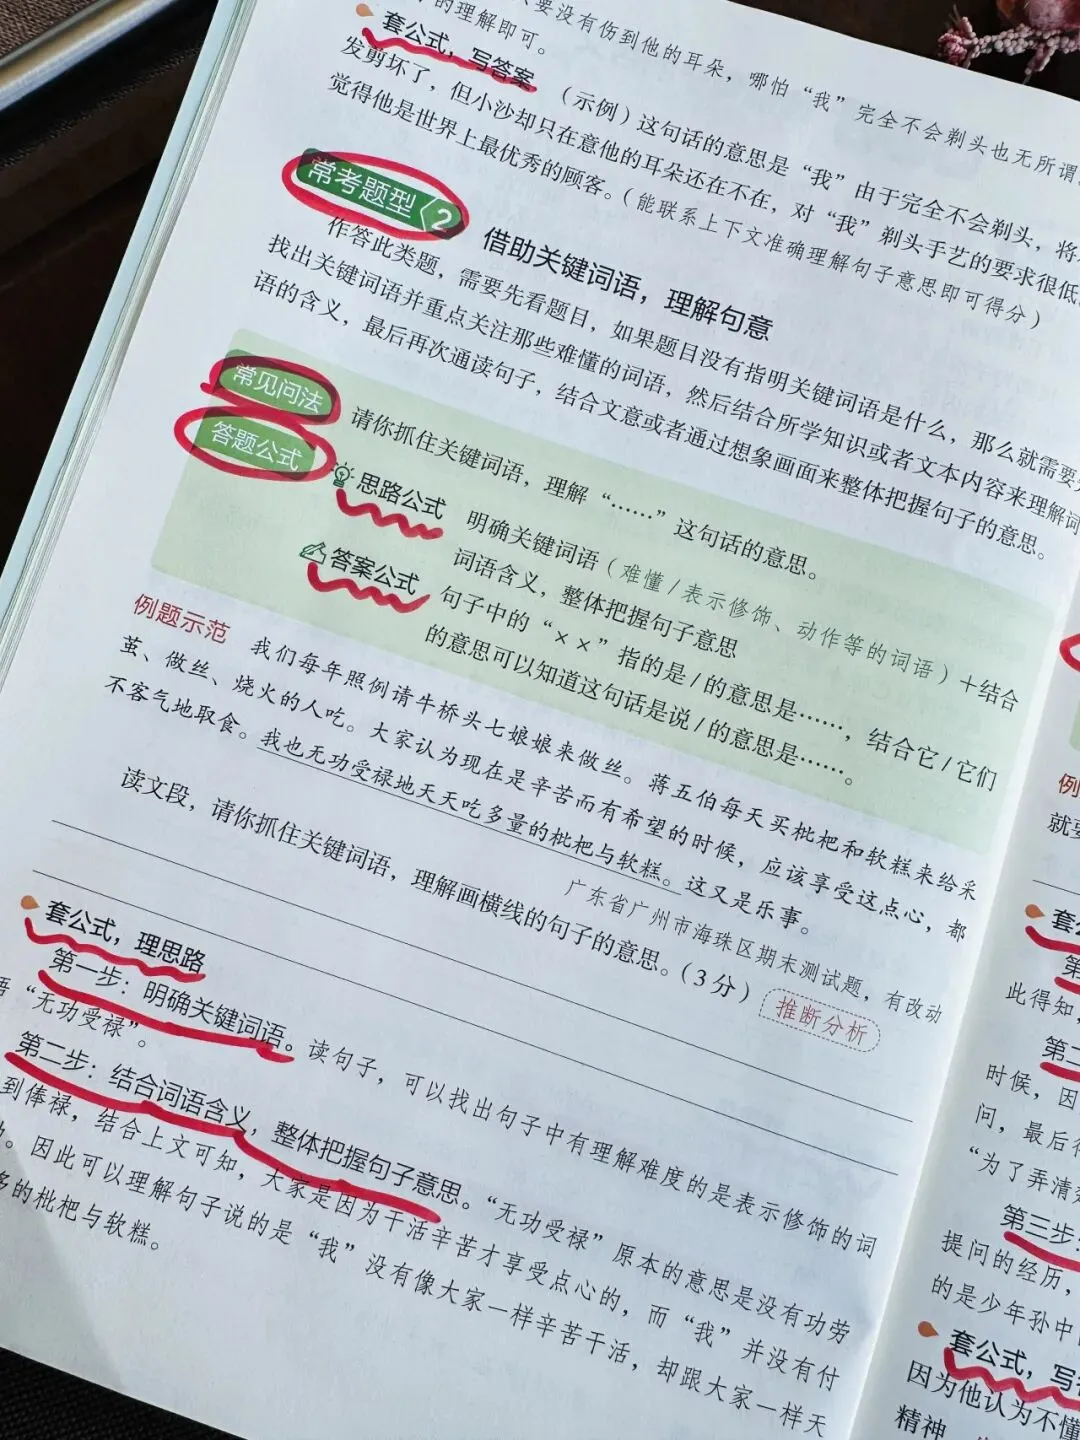 要没有伤到他的耳朵，哪怕“我”完全不会剃头也无所谓
的理解即可。
套公式，写答案 （示例）这句话的意思是“我”由于完全不会剃头，将
发剪坏了，但小沙却只在意他的耳朵还在不在，对“我”剃头手艺的要求很低
觉得他是世界上最优秀的顾客。（能联系上下文准确理解句子意思即可得分）
常考题型 2 借助关键词语，理解句意
作答此类题，需要先看题目，如果题目没有指明关键词语是什么，那么就需要
找出关键词语并重点关注那些难懂的词语，然后结合所学知识或者文本内容来理解词
语的含义，最后再次通读句子，结合文意或者通过想象画面来整体把握句子的意思。
常见问法 请你抓住关键词语，理解“……”这句话的意思。
答题公式
思路公式 明确关键词语（难懂/表示修饰、动作等的词语）＋结合
词语含义，整体把握句子意思
答案公式 句子中的“××”指的是/的意思是……，结合它/它们
的意思可以知道这句话是说/的意思是……。
例题示范 我们每年照例请牛桥头七娘娘来做丝。蒋五伯每天买枇杷和软糕来给采
茧、做丝、烧火的人吃。大家认为现在是辛苦而有希望的时候，应该享受这点心，都
不客气地取食。我也无功受禄地天天吃多量的枇杷与软糕。这又是乐事。
广东省广州市海珠区期末测试题，有改动
读文段，请你抓住关键词语，理解画横线的句子的意思。（3分） 推断分析
套公式，理思路
第一步：明确关键词语。读句子，可以找出句子中有理解难度的是表示修饰的词
语“无功受禄”。
第二步：结合词语含义，整体把握句子意思。“无功受禄”原本的意思是没有功劳
到俸禄，结合上文可知，大家是因为干活辛苦才享受点心的，而“我”并没有付
。因此可以理解句子说的是“我”没有像大家一样辛苦干活，却跟大家一样天
的枇杷与软糕。
例
就
套公
第
此得知，
第二
时候，因
问，最后
“为了弄清
第三步：
提问的经历，
的是少年孙中
套公式，写
因为他认为不懂
精神